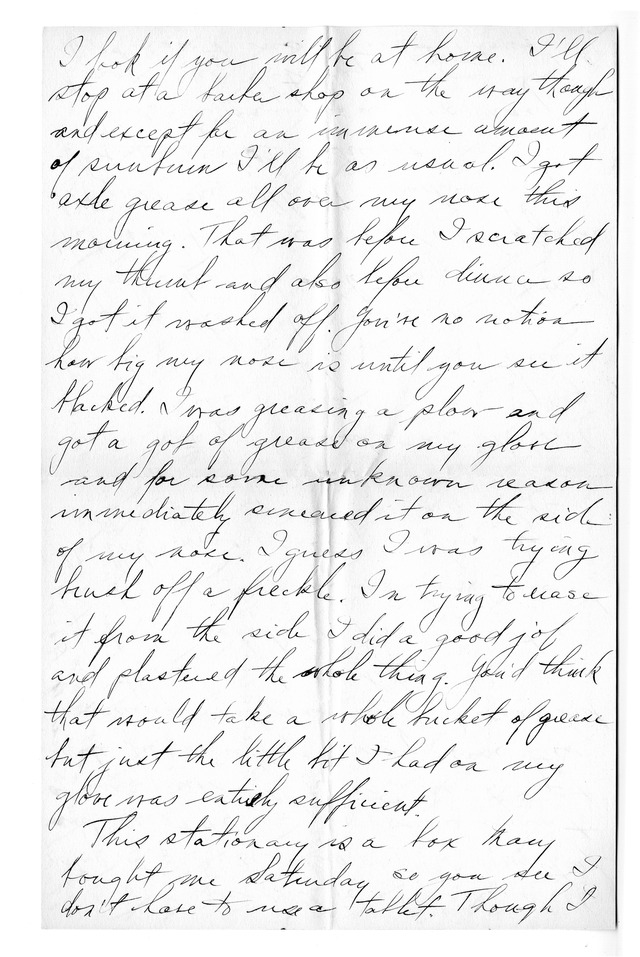 I look if you will be at home. I'll
stop at a barber shop on the way though
and except for an immense amount
of sunburn I'll be as usual. I got
axle grease all over my nose this
morning. That was before I scratched
my thumb and also before dinner so
I got it washed off. You've no notion
how big my nose is until you see it
blacked. I was greasing a plow and
got a gob of grease on my glove
and for some unknown reason
immediately smeared it on the side
of my nose. I guess I was trying
brush off a freckle. In trying to erase
it from the side I did a good job
and plastered the whole thing. You'd think
that would take a whole bucket of grease
but just the little bit I had on my
glove was entirely sufficient.
This stationary is a box Mary
bought me Saturday so you see I
don't have to use a tablet. Though I